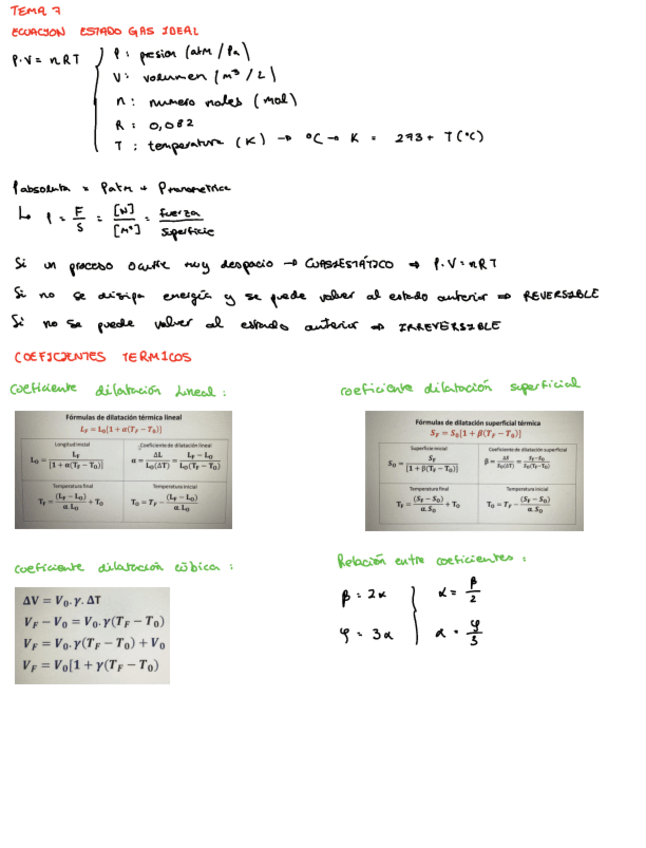 TEMA 7
ECUACION ESTADO GAS IDEAL
P·V = nRT
P: presion (atm / Pa)
V: volumen (m³ / L)
n: numero moles (mol)
R: 0,082
T: temperatura (K) → °C → K = 273 + T(°C)
Pabsoluta = Patm + Pmanometrica
↳ P = F/S = [N]/[m²] = fuerza/superficie
Si un proceso ocurre muy despacio → CUASIESTÁTICO ⇒ P·V = nRT
Si no se disipa energía y se puede volver al estado anterior ⇒ REVERSIBLE
Si no se puede volver al estado anterior ⇒ IRREVERSIBLE
COEFICIENTES TERMICOS
coeficiente dilatación lineal:
Fórmulas de dilatación térmica lineal
L_F = L₀[1 + α(T_F − T₀)]
Longitud inicial
L₀ = L_F / [1 + α(T_F − T₀)]
Coeficiente de dilatación lineal
α = ΔL / L₀(ΔT) = L_F − L₀ / L₀(T_F − T₀)
Temperatura final
T_F = (L_F − L₀) / α.L₀ + T₀
Temperatura inicial
T₀ = T_F − (L_F − L₀) / α.L₀
coeficiente dilatación superficial
Fórmulas de dilatación superficial térmica
S_F = S₀[1 + β(T_F − T₀)]
Superficie inicial
S₀ = S_F / [1 + β(T_F − T₀)]
Coeficiente de dilatación superficial
β = ΔS / S₀(ΔT) = S_F − S₀ / S₀(T_F − T₀)
Temperatura final
T_F = (S_F − S₀) / α.S₀ + T₀
Temperatura inicial
T₀ = T_F − (S_F − S₀) / α.S₀
coeficiente dilatación cúbica:
ΔV = V₀.γ.ΔT
V_F − V₀ = V₀.γ(T_F − T₀)
V_F = V₀.γ(T_F − T₀) + V₀
V_F = V₀[1 + γ(T_F − T₀)
Relación entre coeficientes:
β = 2α
α = β/2
φ = 3α
α = φ/3